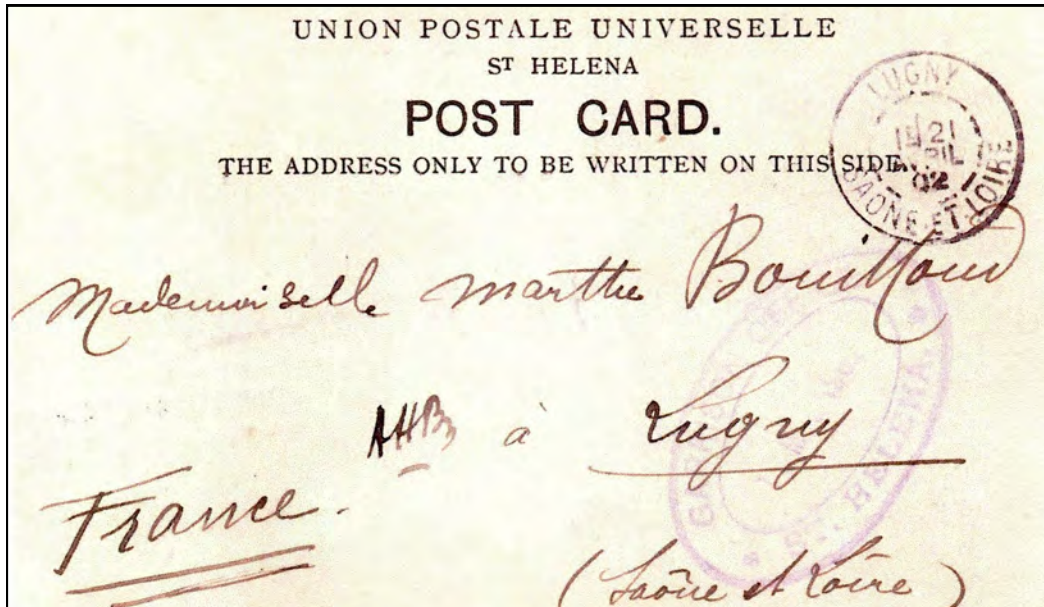 UNION POSTALE UNIVERSELLE
ST HELENA
POST CARD.
THE ADDRESS ONLY TO BE WRITTEN ON THIS SIDE.
LUGNY
21
02
SAONE-ET-LOIRE
Mademoiselle Marthe Bouilloud
AHB
à Lugny
France.
(Saône et Loire)
ST. HELENA.